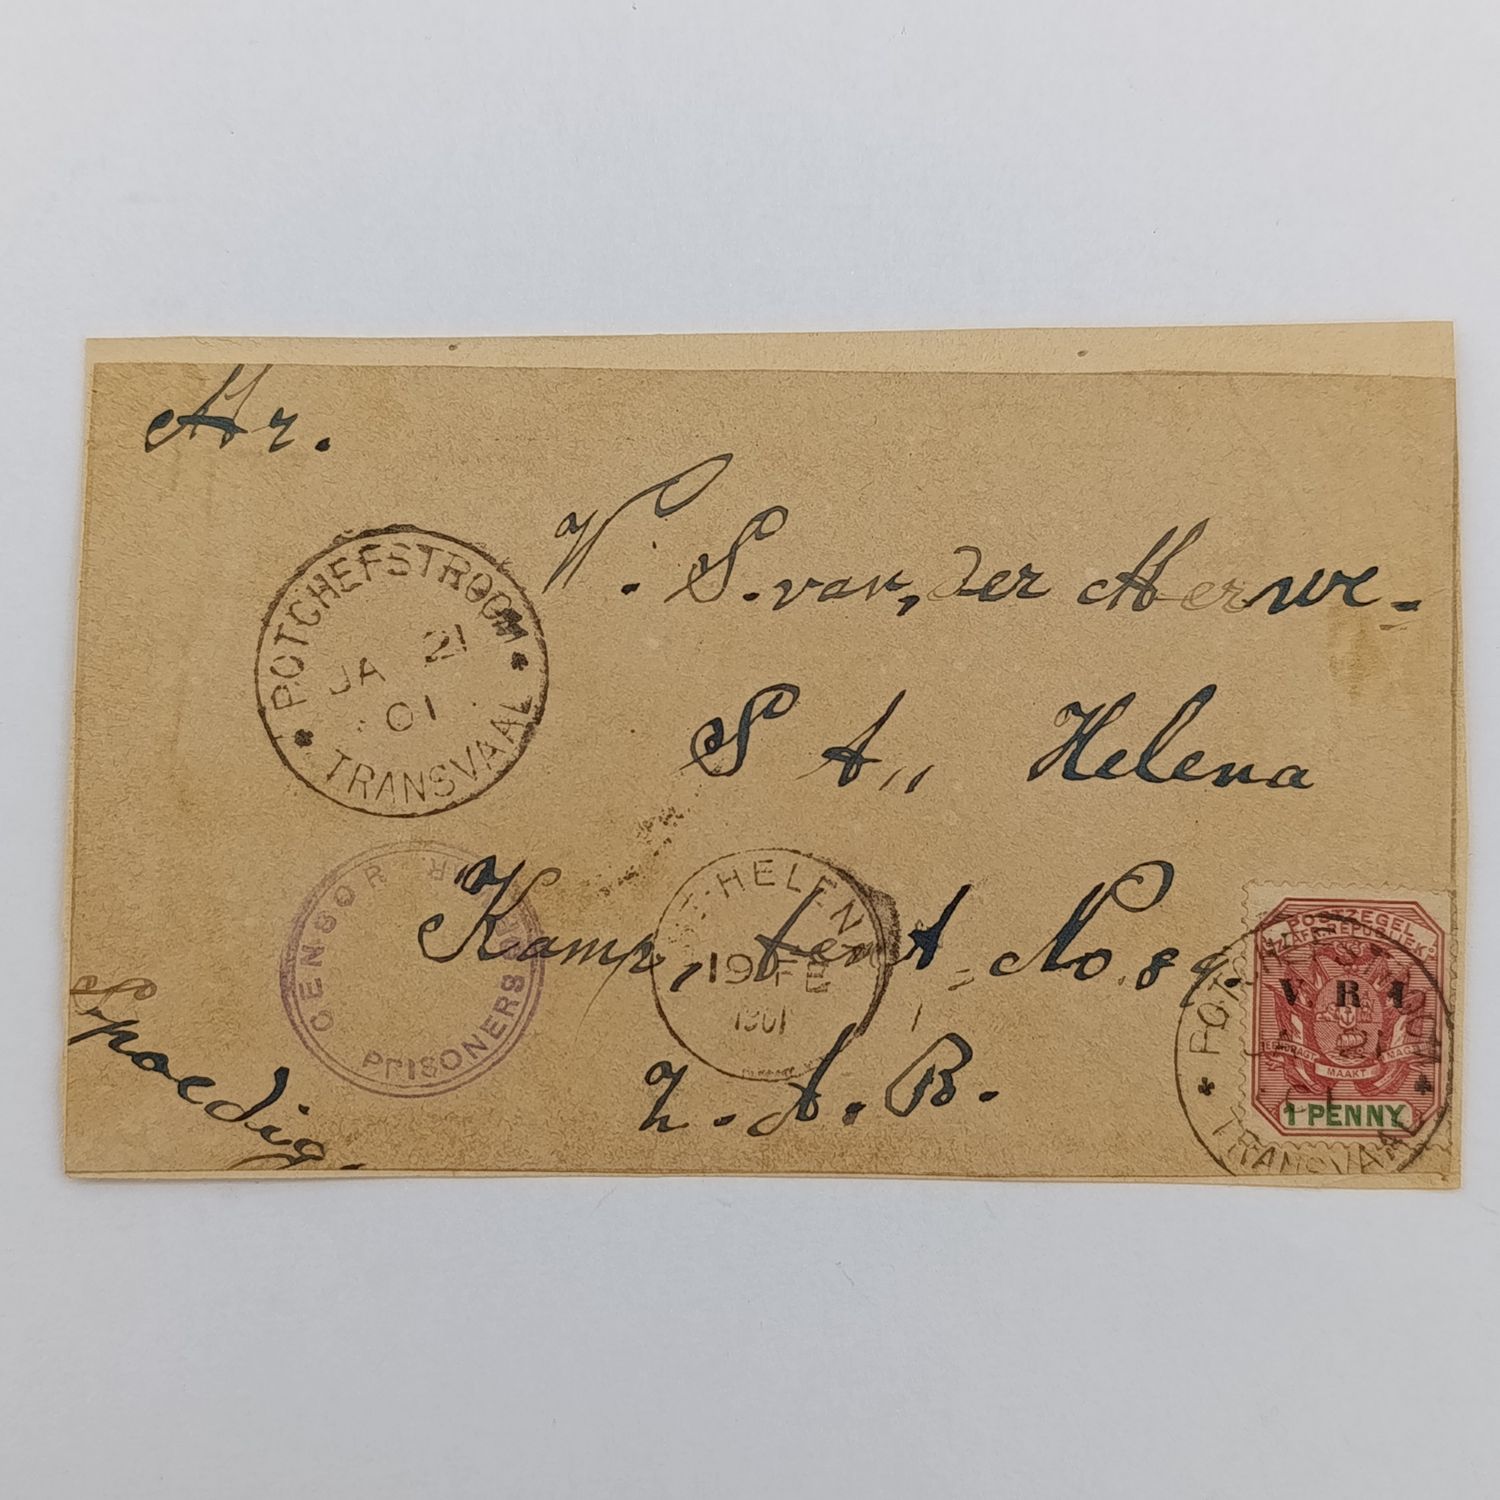 Mr.
W. S. van der Merwe
St,, Helena
Kamp, tent No. 89.
Z. A. B.
Spoedig.
POTCHEFSTROOM
JA 21
01
TRANSVAAL
CENSOR
PRISONERS
ST HELENA
19 FE
1901
POSTZEGEL
Z. AFR. REPUBLIEK
V. R. I.
EENDRAGT MAAKT MAGT
1 PENNY
POTCHEFSTROOM
JA 21
01
TRANSVAAL